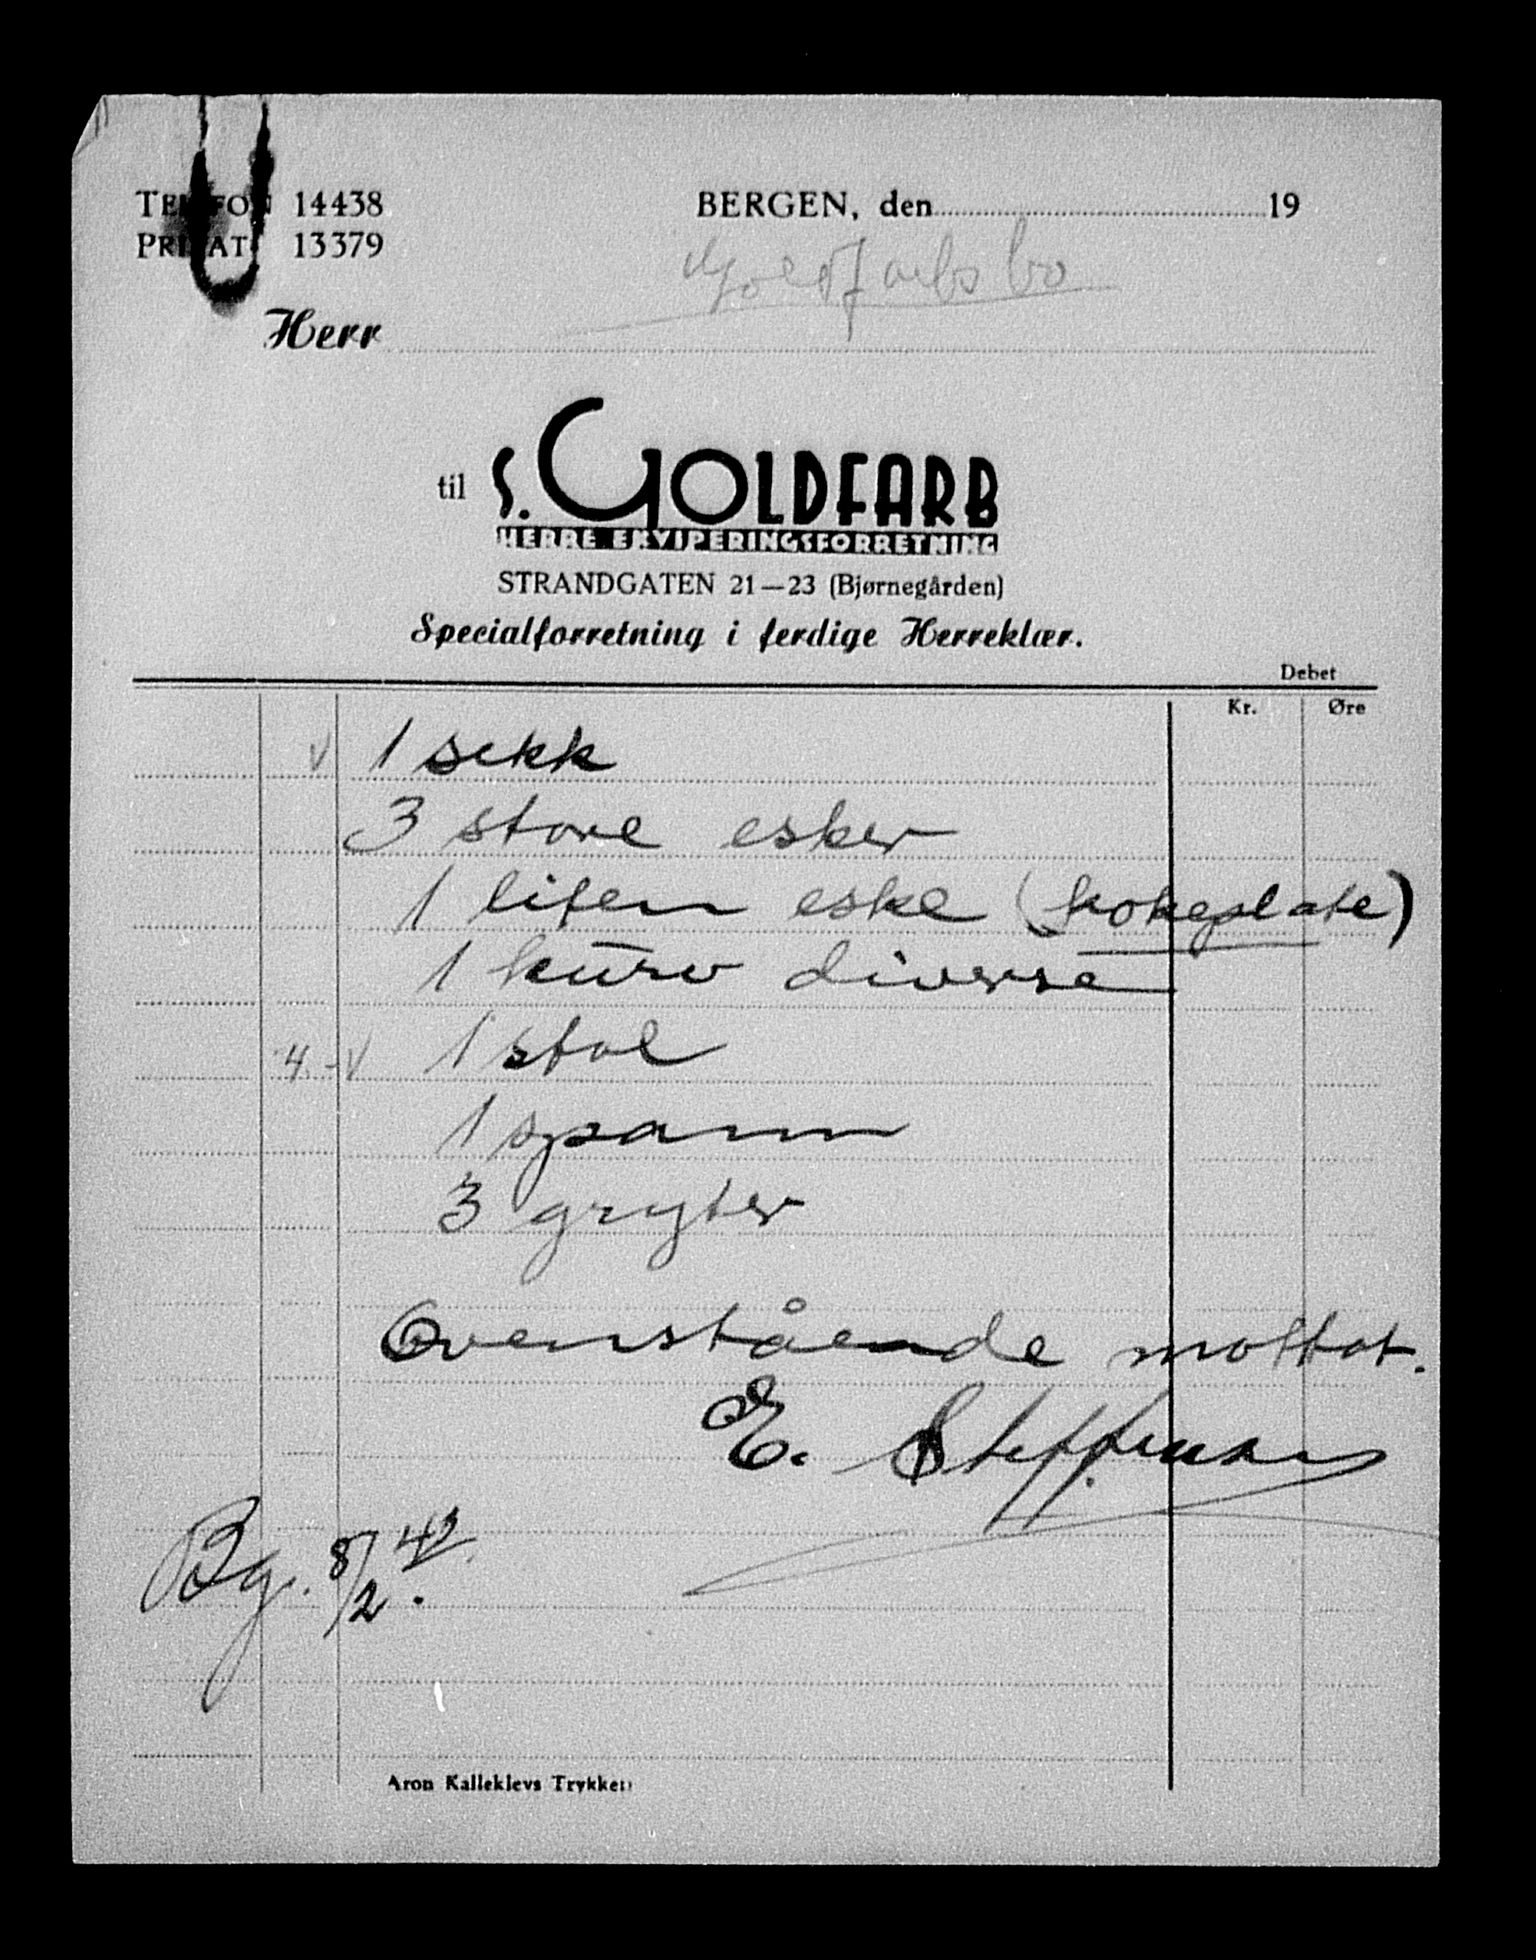 TELEFON 14438
PRIVAT 13379
BERGEN, den 19
Goldfarbs bo
Herr
til S. GOLDFARB
HERRE EKVIPERINGSFORRETNING
STRANDGATEN 21-23 (Bjørnegården)
Specialforretning i ferdige Herreklær.
Debet
Kr. Øre
V 1 sekk
3 store esker
1 liten eske (kokeplate)
1 kurv diverse
4.- V 1 stol
1 spann
3 gryter
Ovenstående mottat.
E. Steffensen
Bg. 8/2. 43.
Aron Kalleklevs Trykkeri